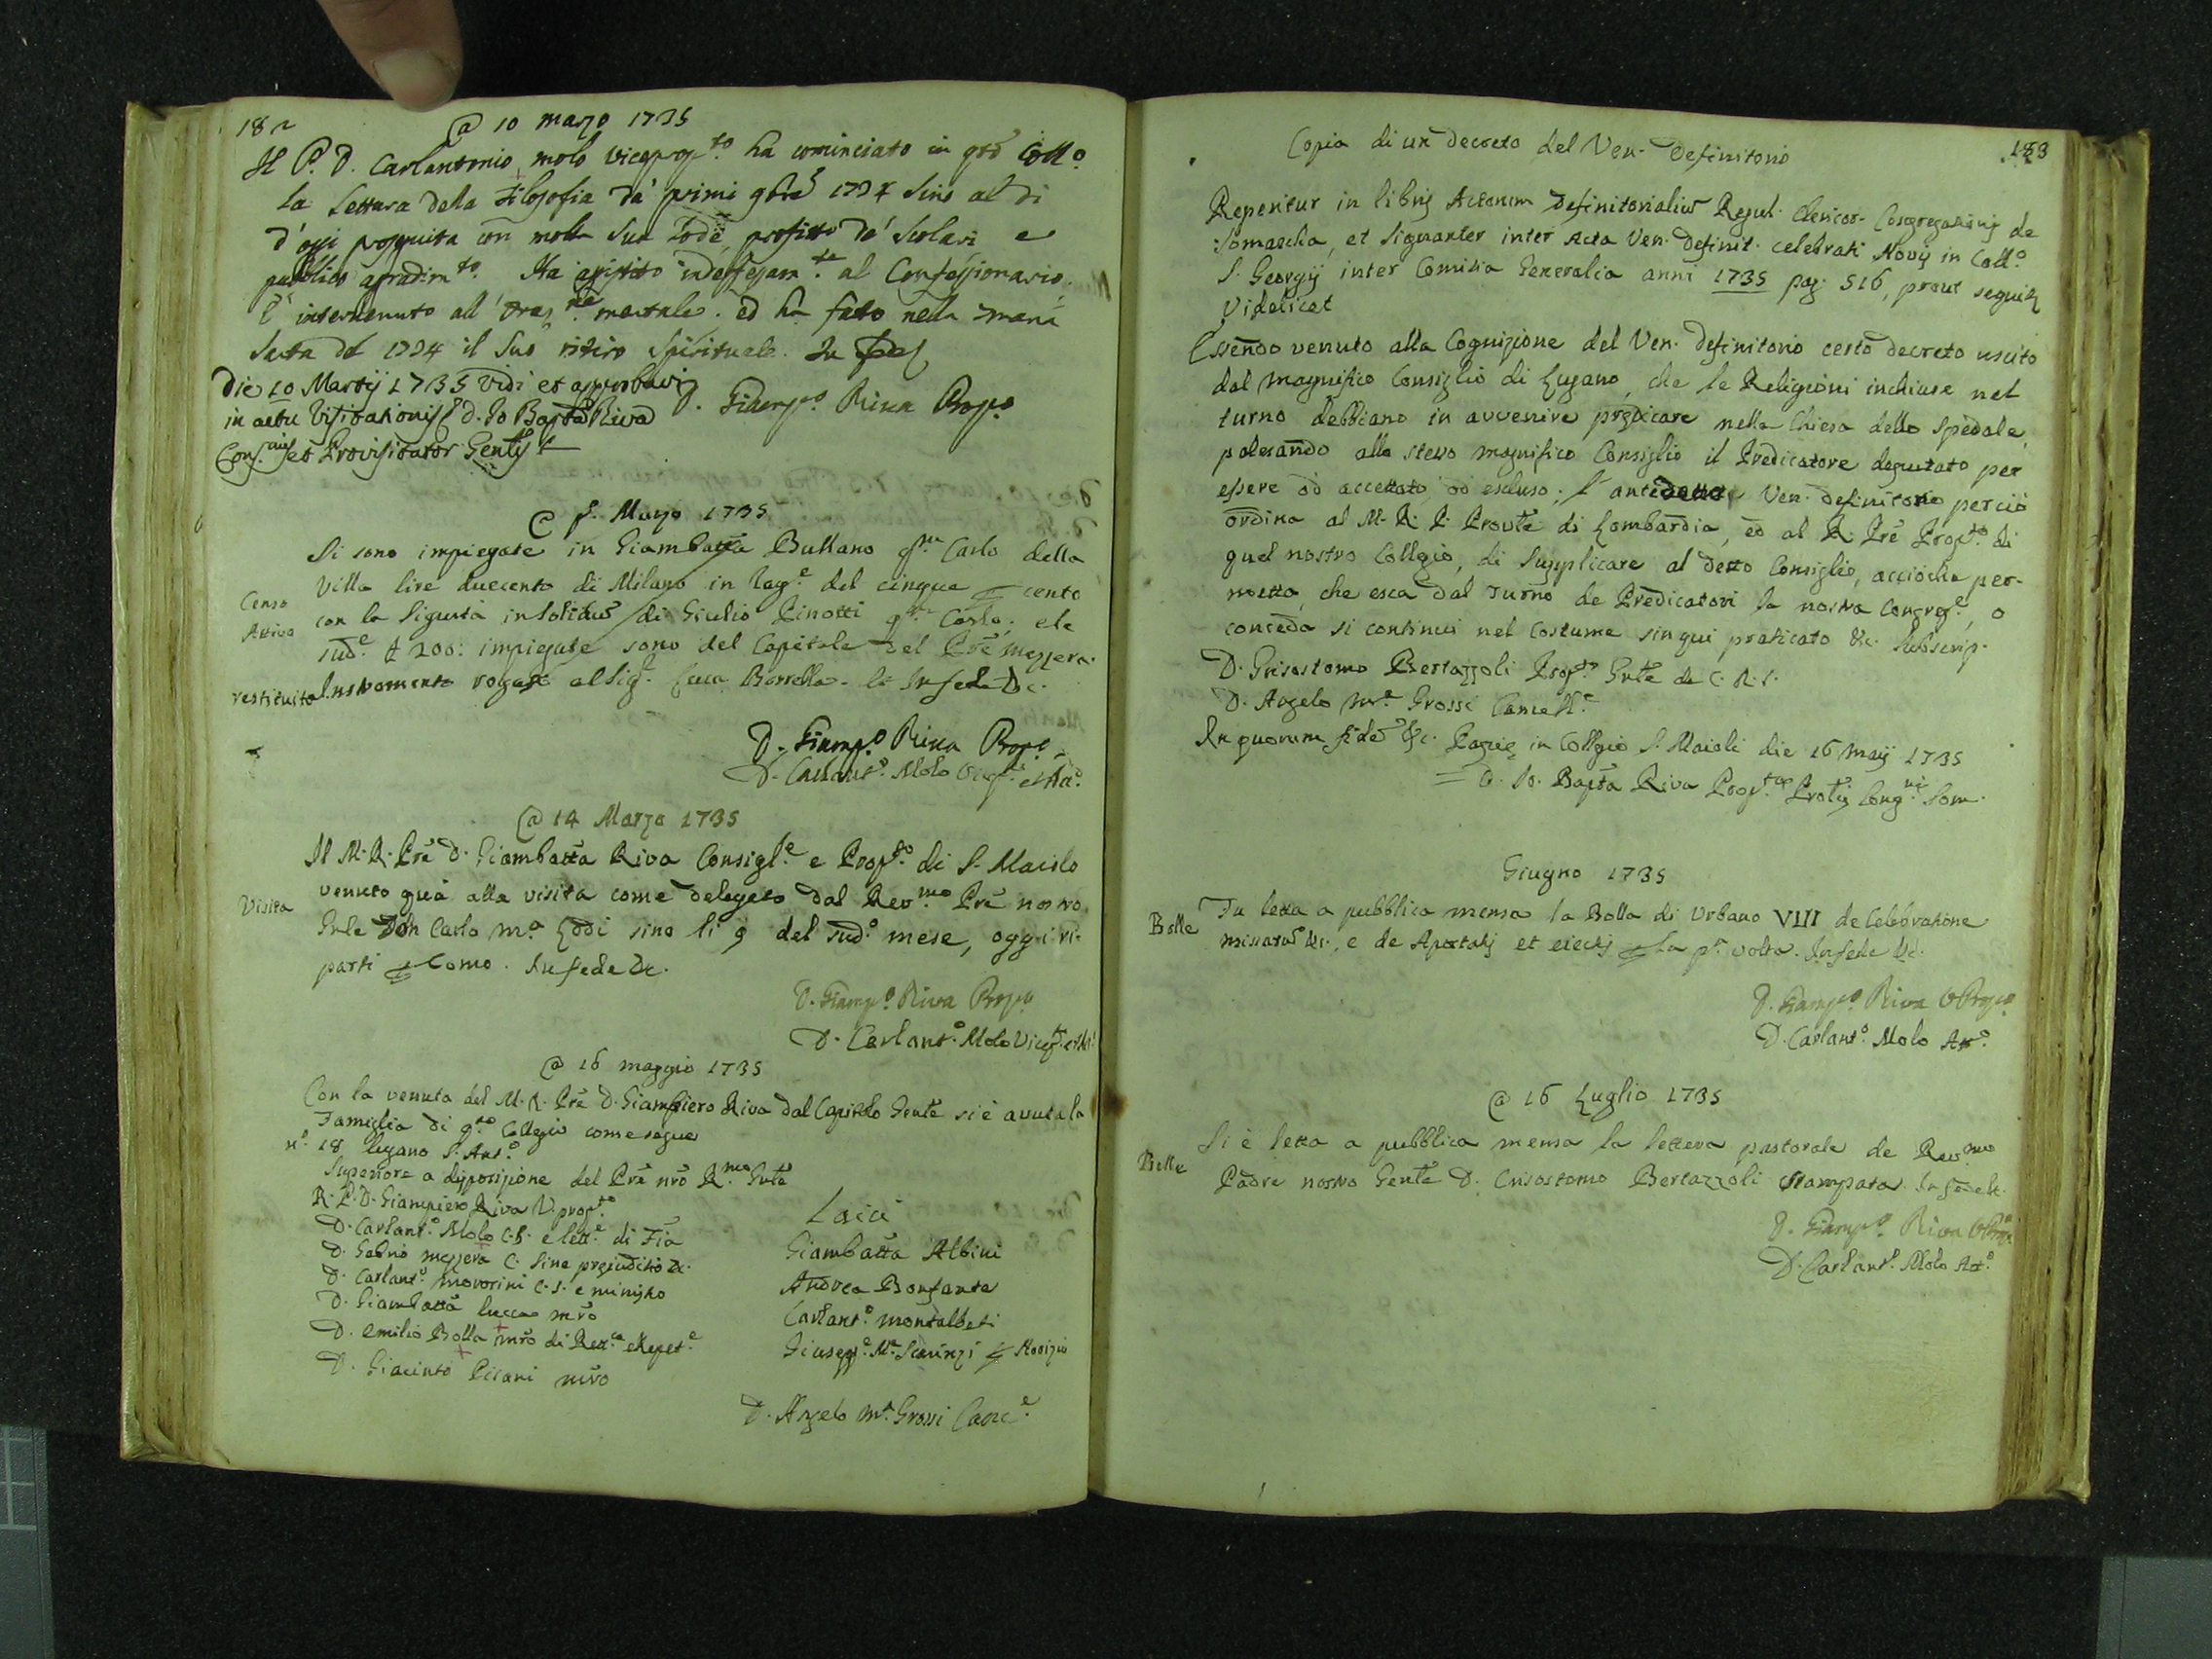 182
@ 10 marzo 1735
Il P. D. Carlantonio molo viceprop.to ha cominciato in qto Coll.o
la Lettura della Filosofia da' primi 9bre 1734 sino al dì
d'oggi proseguita con molta sua lode, profitto de' Scolari e
pubblico agradim.to. Ha assistito indefessam.te al Confessionario.
È intervenuto all' oraz.ne mentale. ed ha fatto nella
Santa del 1734 il suo ritiro spirituale. In fede
Die 10 Martij 1735 Vidi et approbavi
in actu Visitationis D. Io Bapta Riva
Cons.rius et Provisitator Gentis
D. Giamp.o Riva Prop.o
@ p.o Marzo 1735
Si sono impiegate in Giambatta Bullano qm Carlo della
Villa lire duecento di Milano in rag.e del cinque per cento
Censo
Attivo
con la sigurtà in solidum di Giulio Pinotti qm Carlo; e le
sud.e £ 200: impiegate sono del Capitale del Pre Mezzera.
restituito
Instromento rogato al Sig.r Luca Borrella. In fede &c.
D. Giamp.o Riva Prop.o
D. Carlant.o Molo Vicep.to et Att.o
@ 14 Marzo 1735
Il M. R. Pre D. Giambatta Riva Consigl.e e Prop.to di S. Maiolo
Visita
venuto quà alla visita come delegato dal Rev.mo Pre nostro
Gnle Don Carlo M.a Lodi sino li 9 del sud.o mese, oggi ri-
partì per Como. In fede &c.
D. Giamp.o Riva Prop.o
D. Carlant.o Molo Vicep.to et Att.o
@ 16 maggio 1735
Con la venuta del M. R. Pre D. Giampiero Riva dal Capitolo Genle si è avuta la
Famiglia di q.to Collegio come segue
n.o 18 lugano S. Ant.o
Superiore a disposizione del Pre nro R.mo Gnle
R. P. D. Giampiero Riva V. prop.to
D. Carlant.o Molo C. S. e lett.e di Fia
D. Gabrio mezzera C. sine prejuditio &c.
D. Carlant.o Movorini C. S. e ministro
D. Giambatta lucca mro
D. Emilio Bolla mro di Ret.ca e Repet.e
D. Giacinto Pisani mro
Laici
Giambatta Albini
Andrea Bonfante
Carlant.o montalbeti
Giusepp.e M.a Scarinzi per Novizio
D. Angelo M.a Grossi Canc.e
183
Copia di un decreto del Ven. Definitorio
Reperitur in libris Actorum Definitorialium Regul. Clericor. Congregationis de
Somascha, et signanter inter Acta Ven. Definit. celebrati Novij in Coll.o
S. Georgij inter Comitia Generalia anni 1735 pag. 516, prout sequitur
Videlicet
Essendo venuto alla Cognizione del Ven. Definitorio certo decreto uscito
dal magnifico Consiglio di Lugano, che le Religioni inchiuse nel
turno debbano in avvenire predicare nella Chiesa dello Spedale,
palesando allo stesso magnifico Consiglio il Predicatore deputato per
essere od accettato, od escluso; l' antedetto Ven. definitorio perciò
ordina al M. R. P. Provle di Lombardia, ed al R. Pre Prop.to di
quel nostro Collegio, di supplicare al detto Consiglio, acciochè per-
metta, che esca dal turno de Predicatori la nostra Congreg.e, o
conceda si continui nel costume sin qui praticato &c. Subscrip.
D. Grisostomo Bertazzoli Prop.to Gnle de C. R. S.
D. Angelo M.a Grossi Cancell.e
In quorum fidem &c. Papiæ in Collegio S. Maioli die 16 Maij 1735
= D. Io. Bapta Riva Prop.tus Provlis Cong.nis Som.
Giugno 1735
Bolle
Fu letta a pubblica mensa la Bolla di Urbano VIII de Celebratione
missarum &c., e de Apostatis et eiectis per la p.a volta. In fede &c.
D. Giamp.o Riva V Prop.o
D. Carlant.o Molo Att.o
@ 16 Luglio 1735
Bolle
Si è letta a pubblica mensa la lettera pastorale de Rev.mo
Padre nostro Genle D. Crisostomo Bertazzoli stampata. In fede &c.
D. Giamp.o Riva V Prop.o
D. Carlant.o Molo Att.o